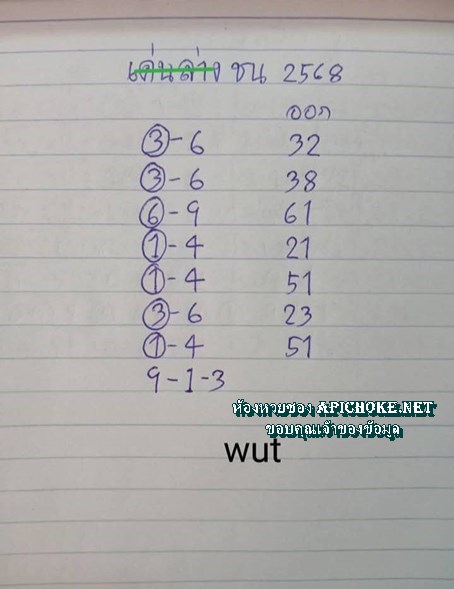 เด่นล่าง ชน 2568
ออก
3-6 32
3-6 38
6-9 61
1-4 21
1-4 51
3-6 23
1-4 51
9-1-3
ห้องหวยซอง APICHOKE.NET
ขอบคุณเจ้าของข้อมูล
wut